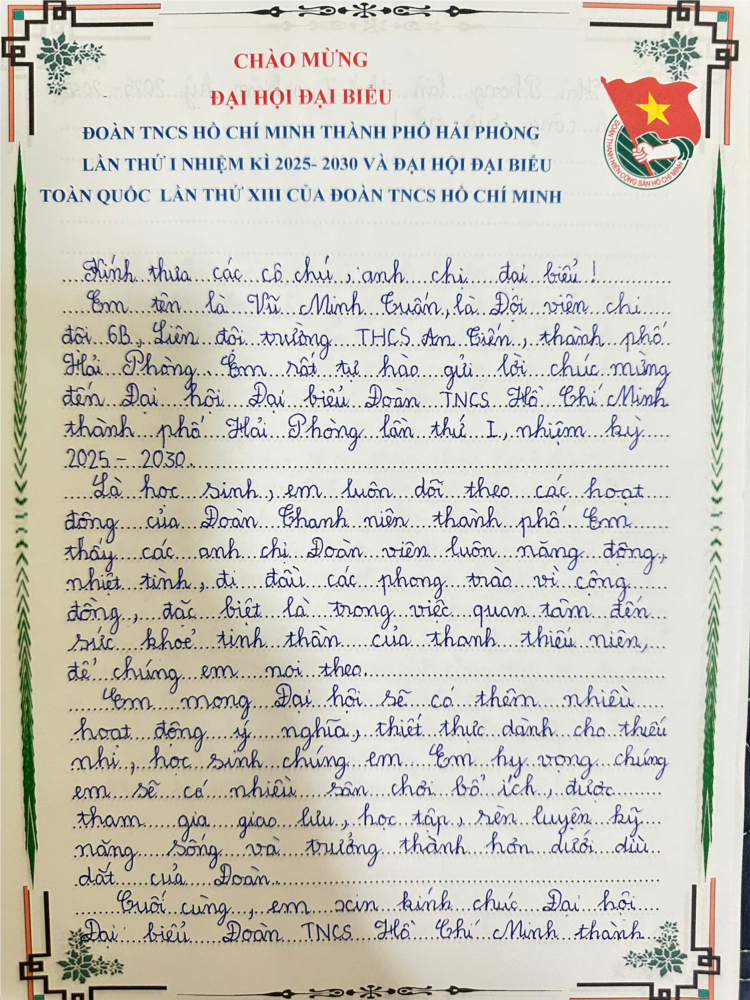 CHÀO MỪNG
ĐẠI HỘI ĐẠI BIỂU
ĐOÀN TNCS HỒ CHÍ MINH THÀNH PHỐ HẢI PHÒNG
LẦN THỨ I NHIỆM KÌ 2025- 2030 VÀ ĐẠI HỘI ĐẠI BIỂU
TOÀN QUỐC LẦN THỨ XIII CỦA ĐOÀN TNCS HỒ CHÍ MINH
ĐOÀN THANH NIÊN CỘNG SẢN HỒ CHÍ MINH
Kính thưa các cô chú, anh chị đại biểu!
Em tên là Vũ Minh Tuấn, là Đội viên chi
đội 6B, Liên đội trường THCS An Tiến, thành phố
Hải Phòng. Em rất tự hào gửi lời chúc mừng
đến Đại hội Đại biểu Đoàn TNCS Hồ Chí Minh
thành phố Hải Phòng lần thứ I, nhiệm kỳ
2025 - 2030.
Là học sinh, em luôn dõi theo các hoạt
động của Đoàn Thanh niên thành phố. Em
thấy các anh chị Đoàn viên luôn năng động,
nhiệt tình, đi đầu các phong trào vì cộng
đồng, đặc biệt là trong việc quan tâm đến
sức khoẻ tinh thần của thanh thiếu niên,
để chúng em noi theo.
Em mong Đại hội sẽ có thêm nhiều
hoạt động ý nghĩa, thiết thực dành cho thiếu
nhi, học sinh chúng em. Em hy vọng chúng
em sẽ có nhiều sân chơi bổ ích, được
tham gia giao lưu, học tập, rèn luyện kỹ
năng sống và trưởng thành hơn dưới dìu
dắt của Đoàn.
Cuối cùng, em xin kính chúc Đại hội
Đại biểu Đoàn TNCS Hồ Chí Minh thành